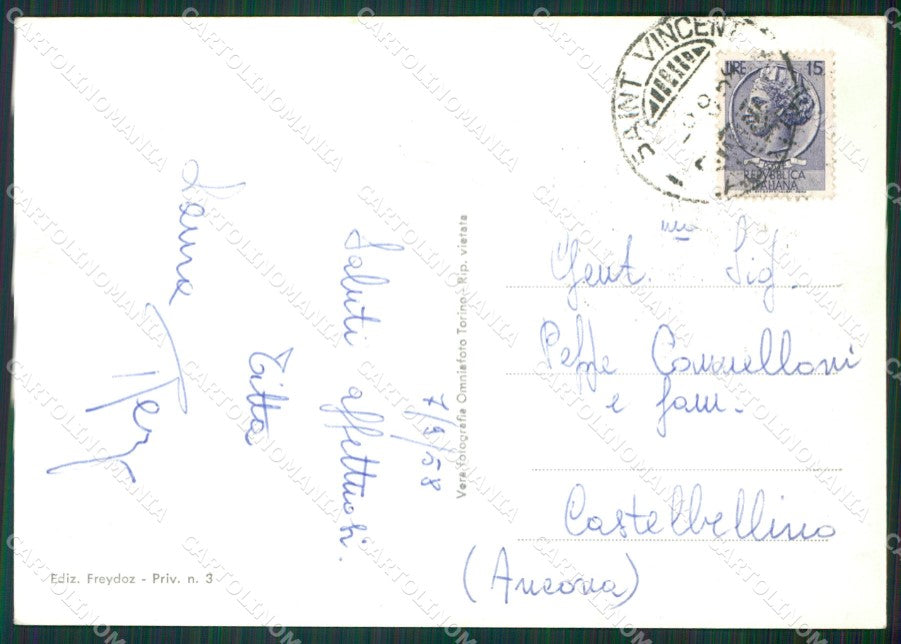 SAINT VINCENT
LIRE 15
REPVBBLICA
ITALIANA
7/9/58
Saluti affettuosi.
Titta
Laura
Gent.mo Sig.
Peppe
e fam.
Castelbellino
(Ancona)
Vera fotografia Omniafoto Torino - Rip. vietata
Ediz. Freydoz - Priv. n. 3
CARTOLINOMANIA